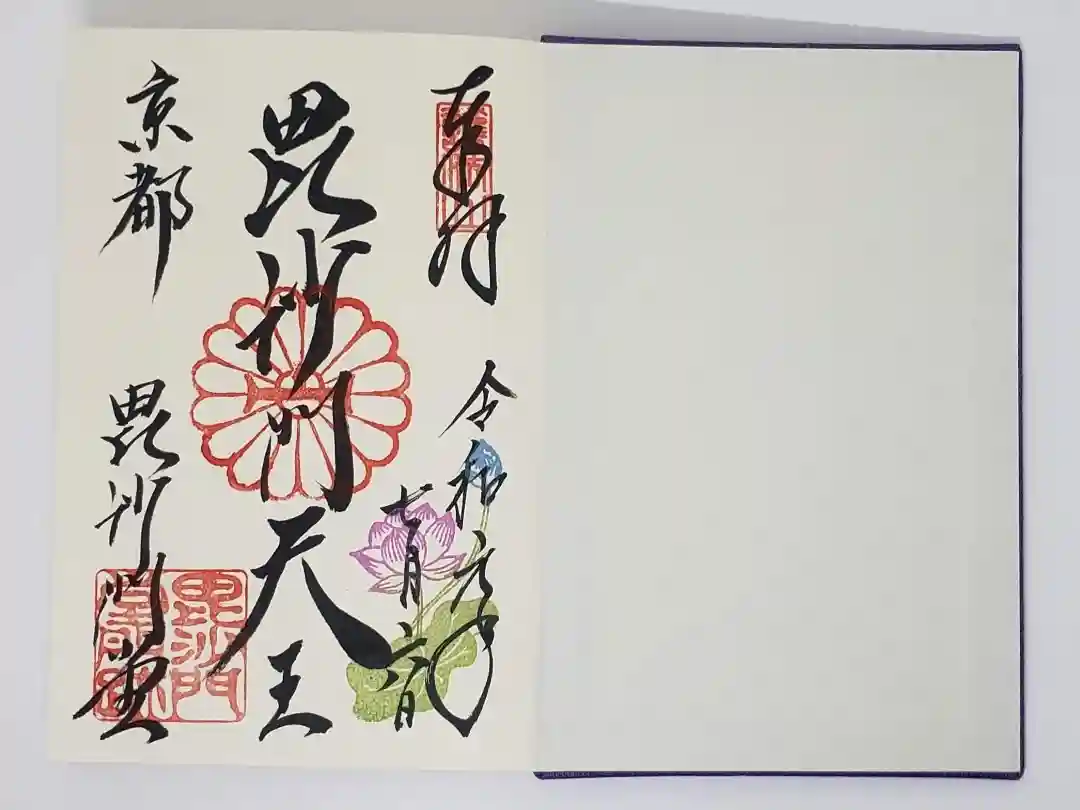 奉拝
令和元年
七月六日
毘沙門天王
京都
毘沙門堂
毘沙門